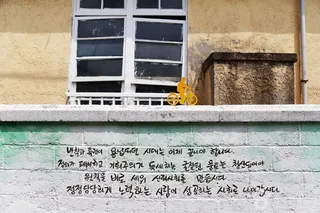 반칙과 특권이 용납되던 시대는 이제 끝나야 합니다.
정의가 패배하고 기회주의가 득세하는 굴절된 풍토는 청산되어야
원칙을 바로 세워 신뢰사회를 만듭시다.
정정당당하게 노력하는 사람이 성공하는 사회로 나아갑시다.